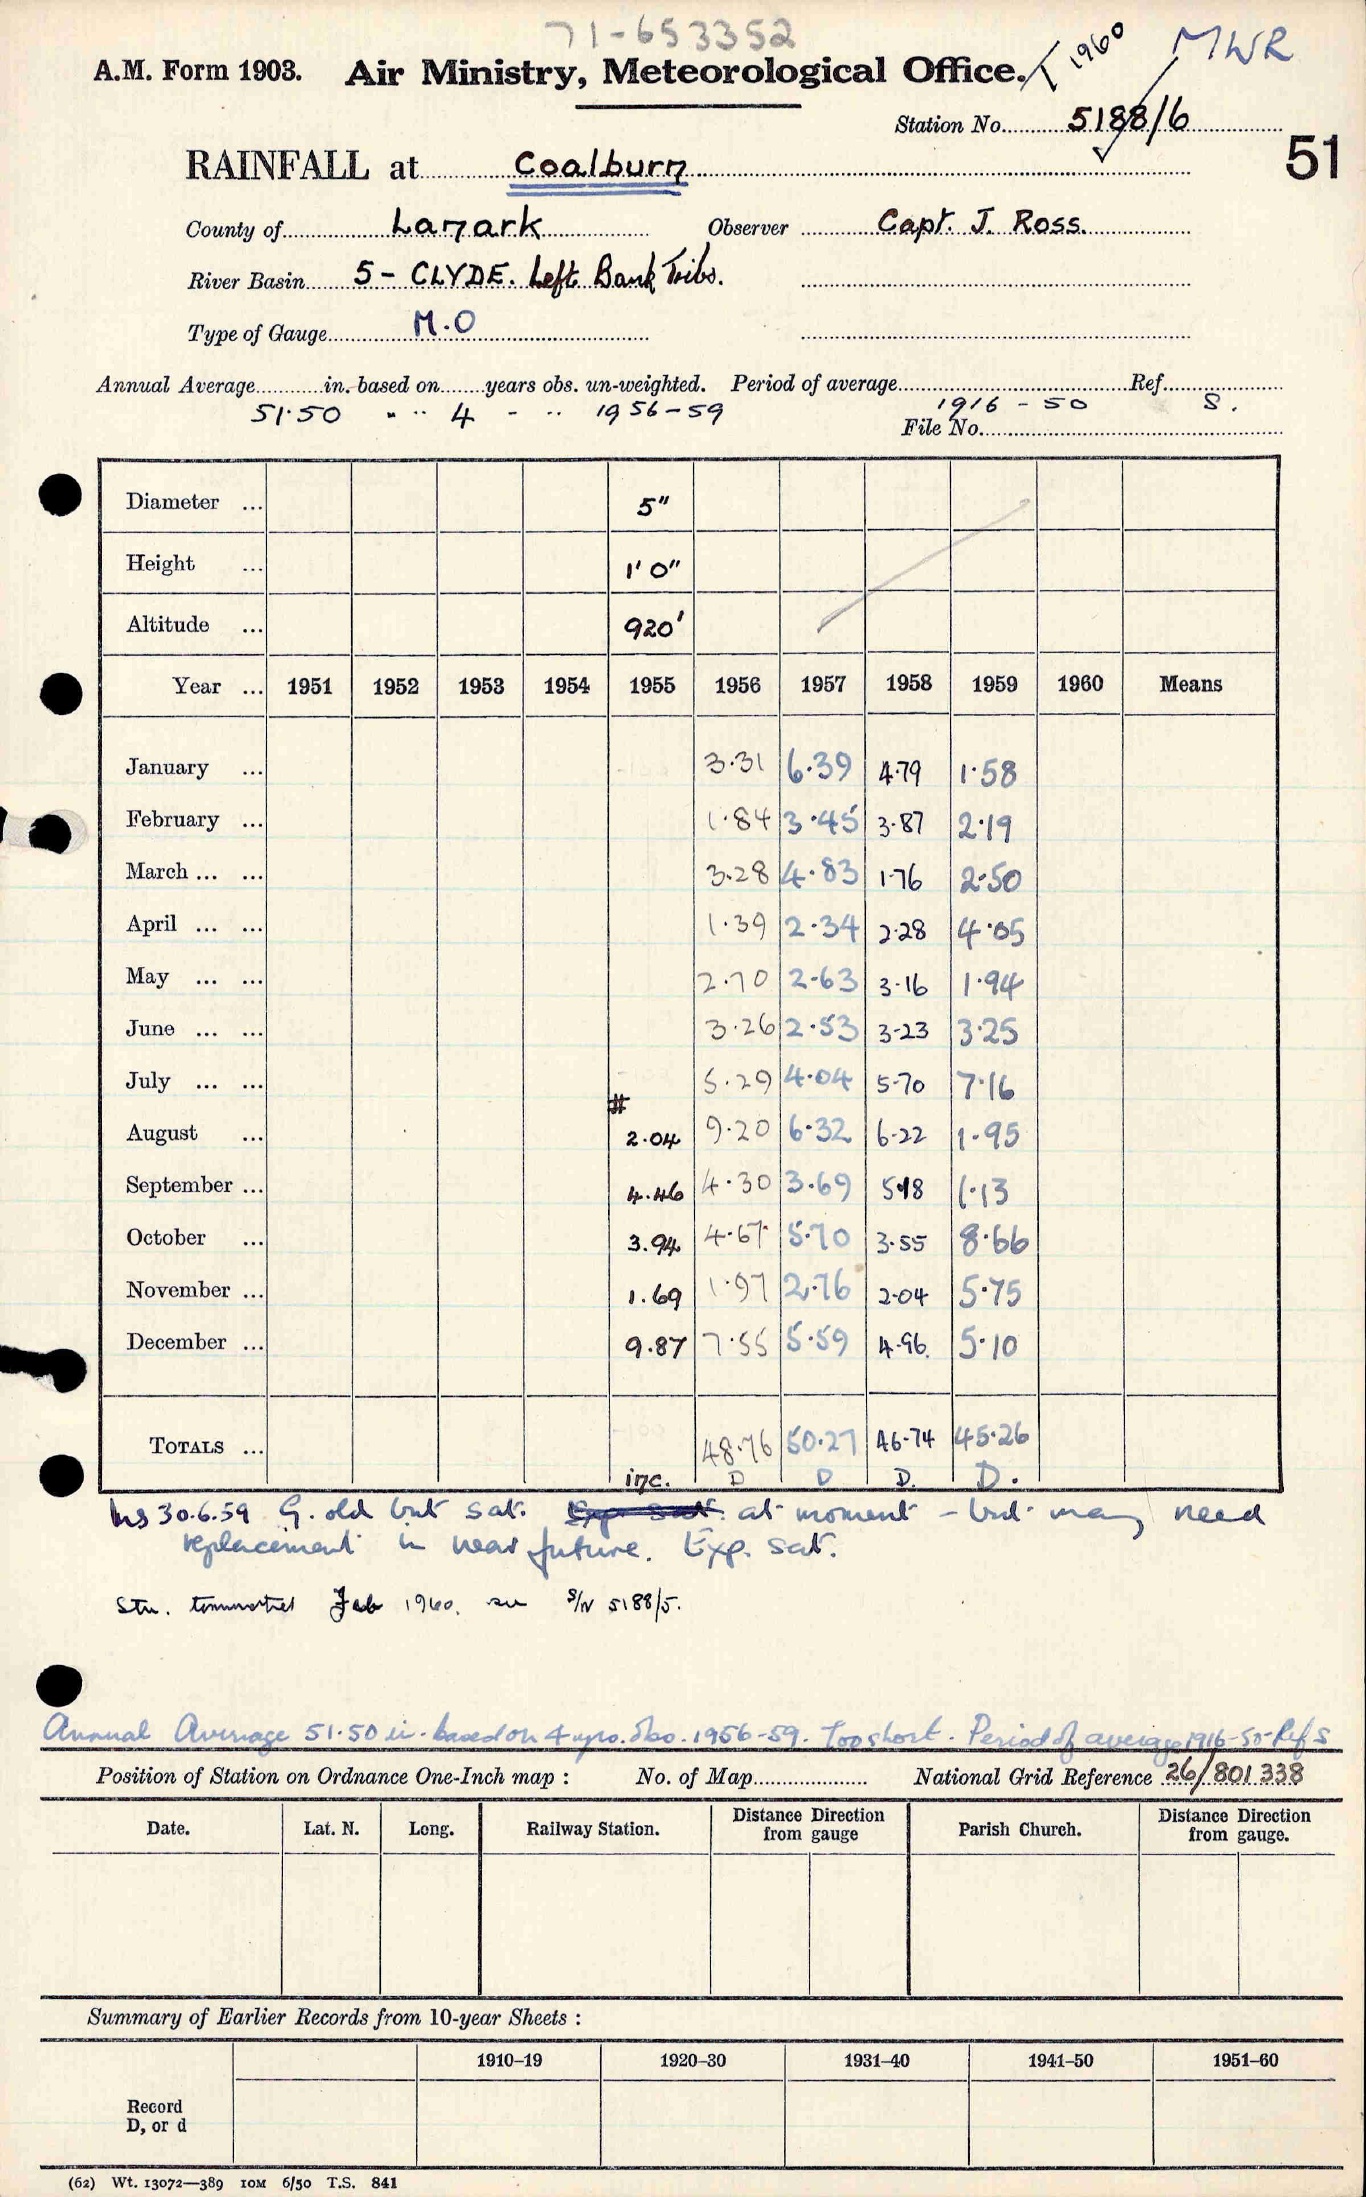 71-653352
T 1960
MWR
A.M. Form 1903. Air Ministry, Meteorological Office.
Station No. 5188/6
51
RAINFALL at Coalburn
County of Lanark Observer Capt. J. Ross.
River Basin 5 - CLYDE. Left Bank Tribs.
Type of Gauge M.O
Annual Average in. based on years obs. un-weighted. Period of average Ref.
51.50 " " 4 - " 1956-59 1916-50 S.
File No.
Diameter ... 5"
Height ... 1' 0"
Altitude ... 920'
Year ... 1951 1952 1953 1954 1955 1956 1957 1958 1959 1960 Means
January ... 3.31 6.39 4.79 1.58
February ... 1.84 3.45 3.87 2.19
March ... ... 3.28 4.83 1.76 2.50
April ... ... 1.39 2.34 2.28 4.05
May ... ... 2.70 2.63 3.16 1.94
June ... ... 3.26 2.53 3.23 3.25
July ... ... 5.29 4.04 5.70 7.16
#
August ... 2.04 9.20 6.32 6.22 1.95
September ... 4.46 4.30 3.69 5.18 1.13
October ... 3.94 4.67 5.70 3.55 8.66
November ... 1.69 1.97 2.76 2.04 5.75
December ... 9.87 7.55 5.59 4.96 5.10
TOTALS ... 48.76 50.27 46.74 45.26
inc. D D D. D.
Ins 30.6.59 G. old but sat. Exp sat. at moment - but may need
replacement in near future. Exp. sat.
Stn. terminated Feb 1960. see S/N 5188/5.
Annual Average 51.50 in. based on 4 yrs. obs. 1956-59. Too short. Period of average 1916-50 Ref S
Position of Station on Ordnance One-Inch map : No. of Map National Grid Reference 26/801 338
Date. Lat. N. Long. Railway Station. Distance Direction from gauge Parish Church. Distance Direction from gauge.
Summary of Earlier Records from 10-year Sheets :
1910–19 1920–30 1931–40 1941–50 1951–60
Record
D, or d
(62) Wt. 13072—389 10M 6/50 T.S. 841